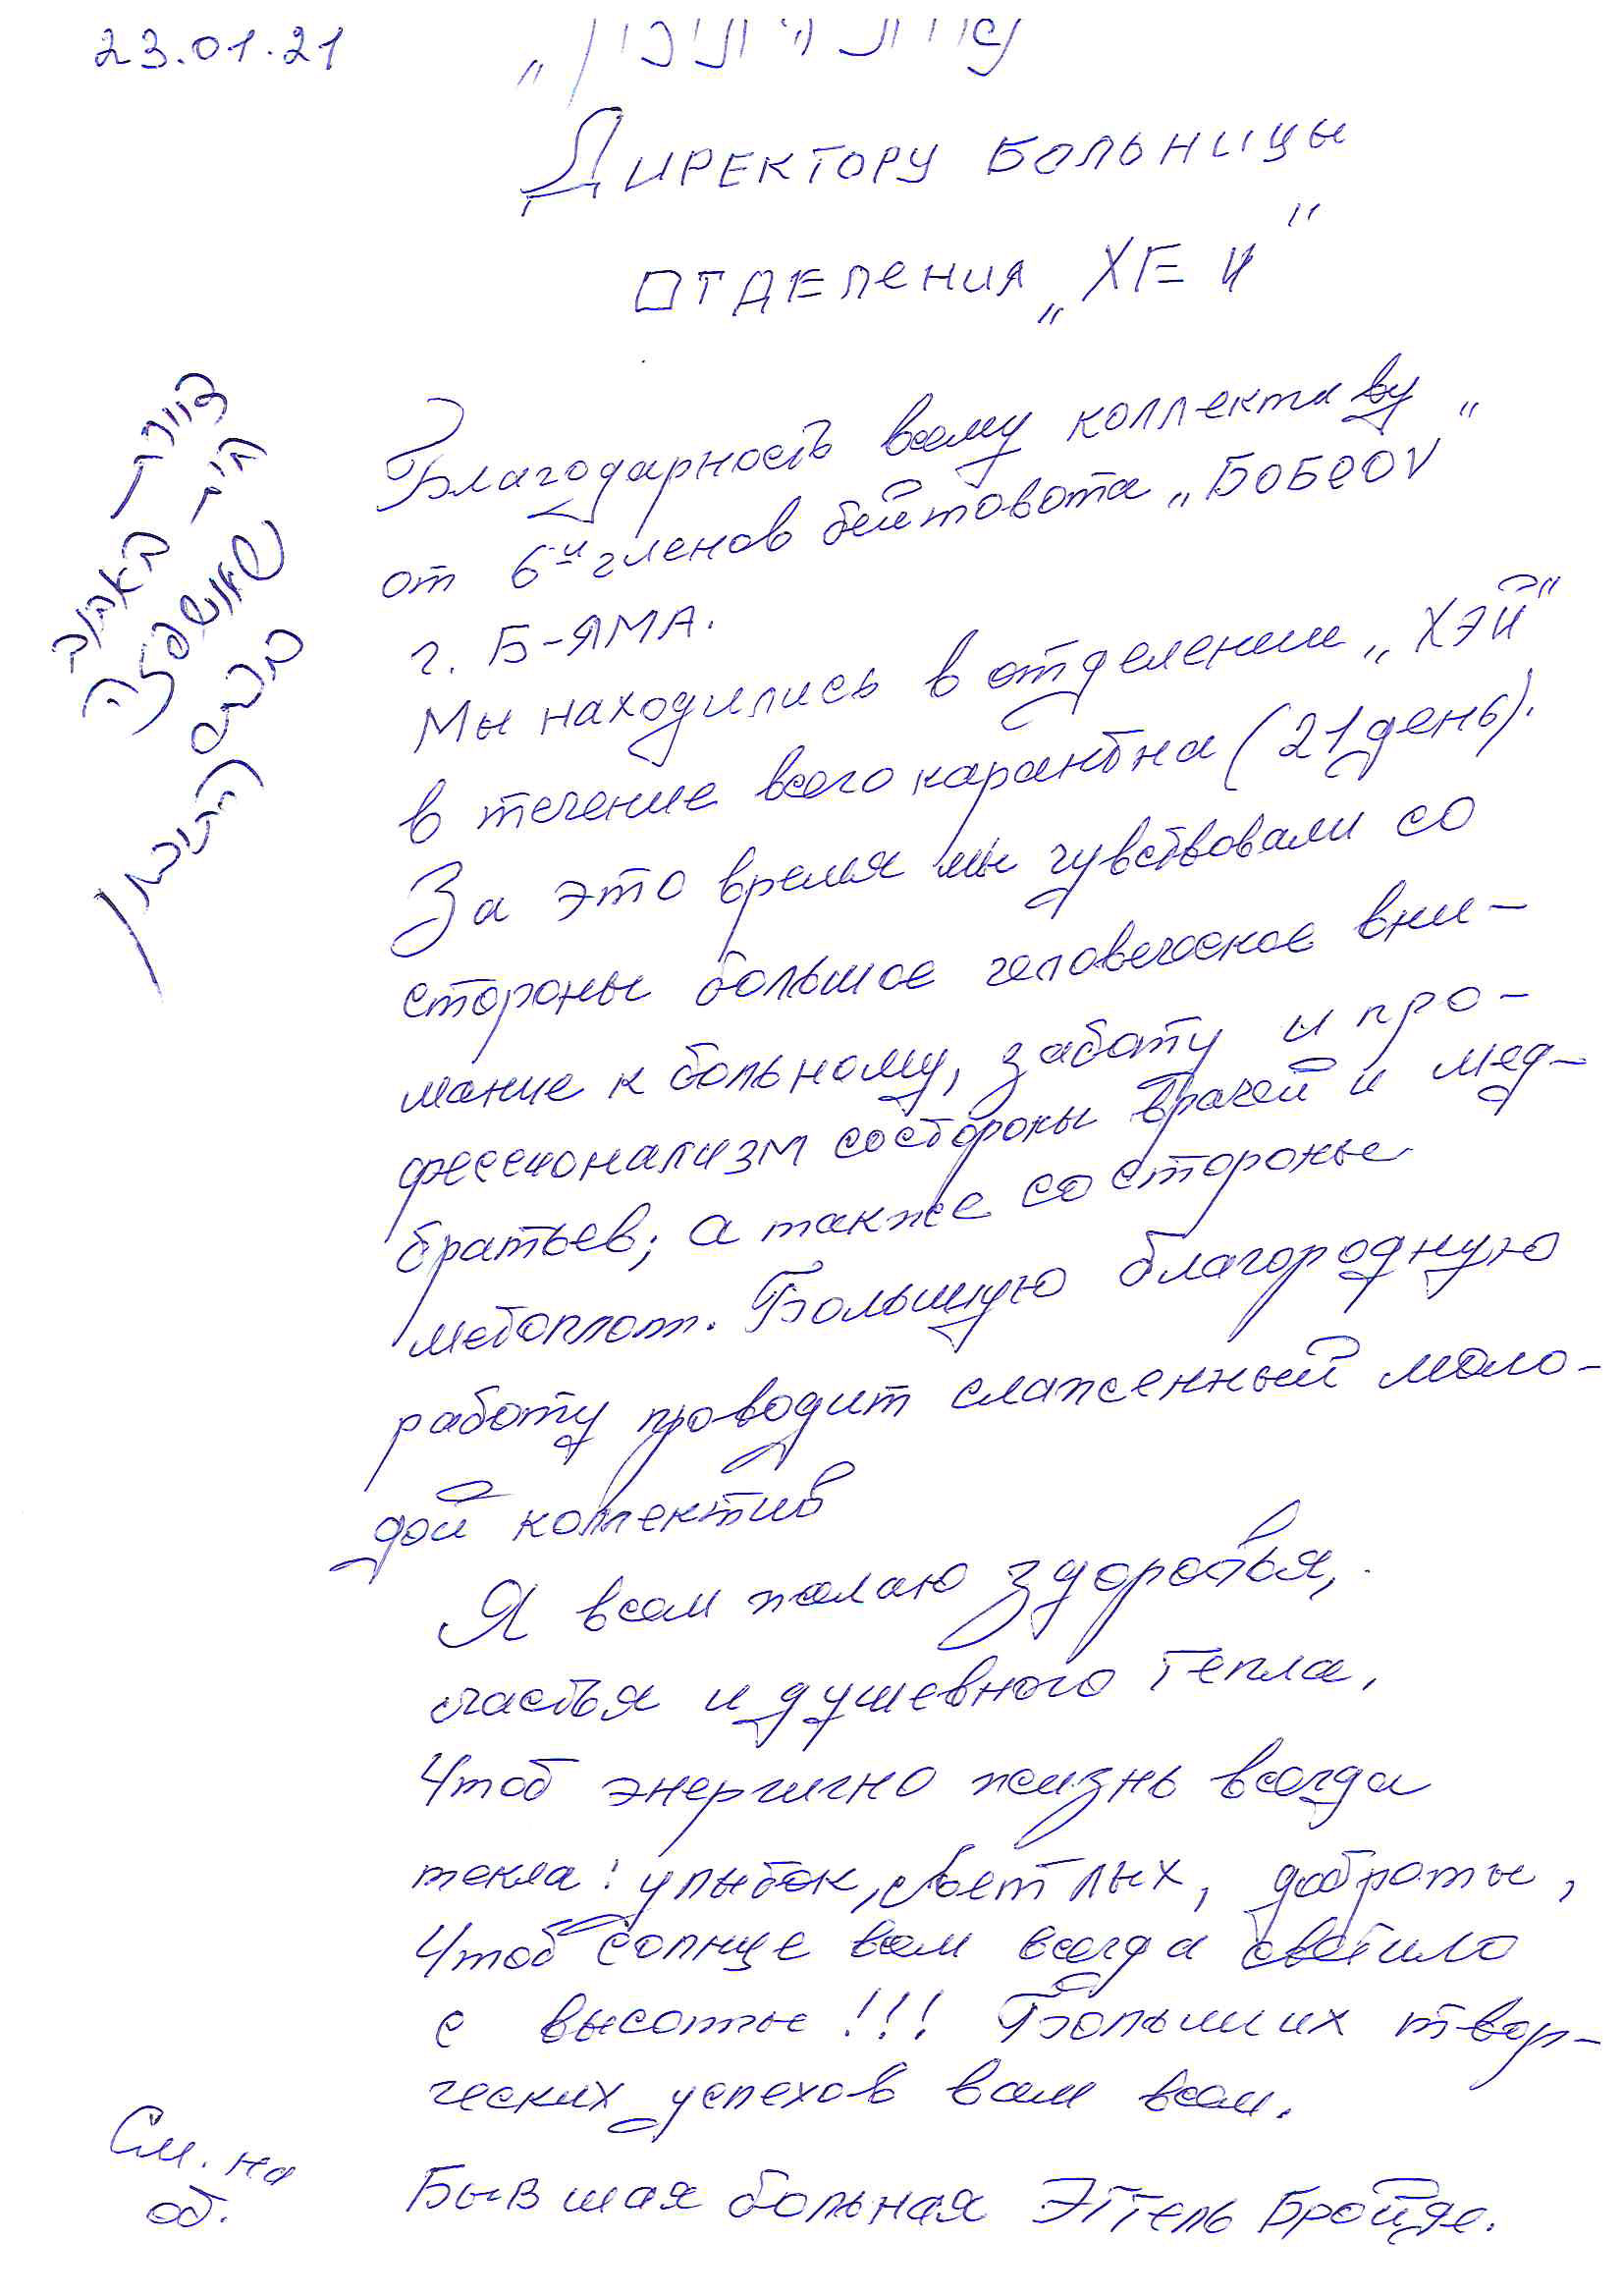 23.01.21
Директору больницы
отделения „ХЕЙ"
Благодарность всему коллективу
от 6и членов бейтовота „БОБРОV"
г. Б-ЯМА.
Мы находились в отделении „ХЭЙ"
в течение всего карантина (21 день).
За это время мы чувствовали со
стороны большое человеческое вни-
мание к больному, заботу и про-
фессионализм со стороны врачей и мед-
братьев; а также со стороны
метаплот. Большую благородную
работу проводит слаженный моло-
дой коллектив
Я всем желаю здоровья,
счастья и душевного тепла,
Чтоб энергично жизнь всегда
текла! улыбок, светлых, доброты,
Чтоб солнце вам всегда светило
с высоты!!! Больших твор-
ческих успехов вам всем.
См. на
об.
Бывшая больная Эттель Бройде.